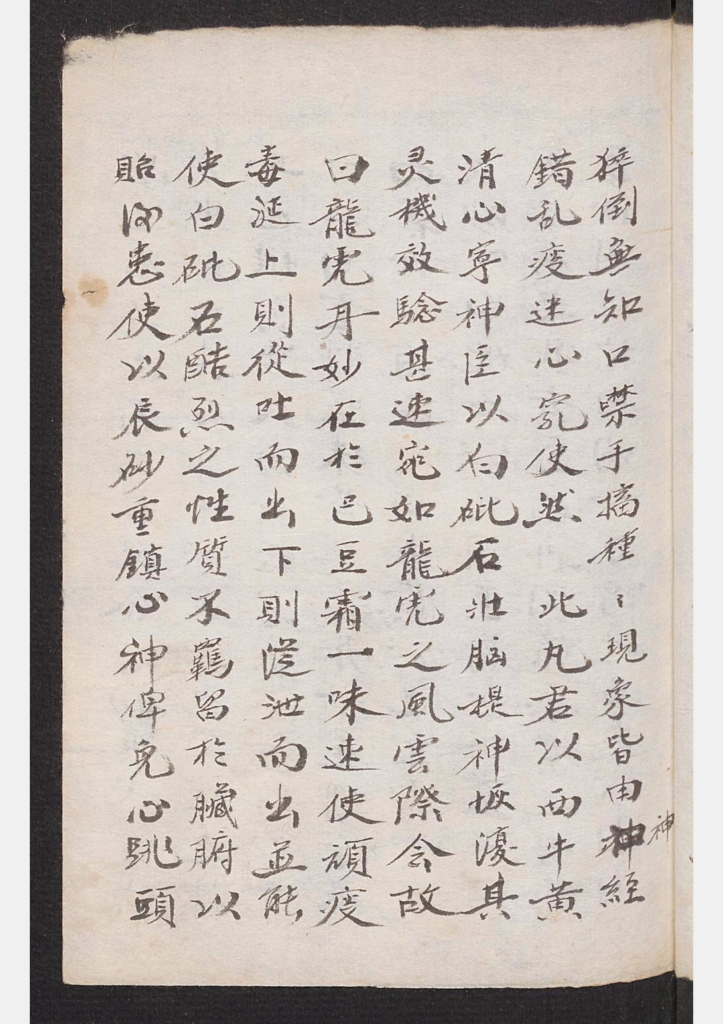 猝倒無知口噤手搐種〻現象皆由神經
神
錯乱痰迷心竅使然 此丸君以西牛黄
清心寧神臣以白砒石壯脑提神恢復其
灵機效騐甚速宛如龍虎之風雲際会故
曰龍虎丹妙在於巴豆霜一味速使頑痰
毒涎上則從吐而出下則從泄而出並能
使白砒石酷烈之性質不羈留於臟腑以
貽後患使以辰砂重鎮心神俾免心跳頭